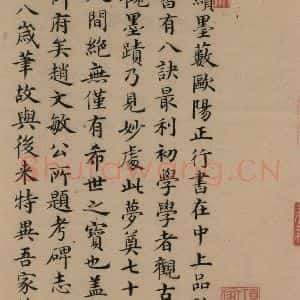 續墨藪歐陽正行書在中上品
有八訣最利初學學者觀古
墨蹟乃見妙處此夢奠七十
人間絕無僅有希世之寶也蓋
府矣趙文敏公所題考碑志
八歲筆故與後来特異吾家
Shufawang.CN